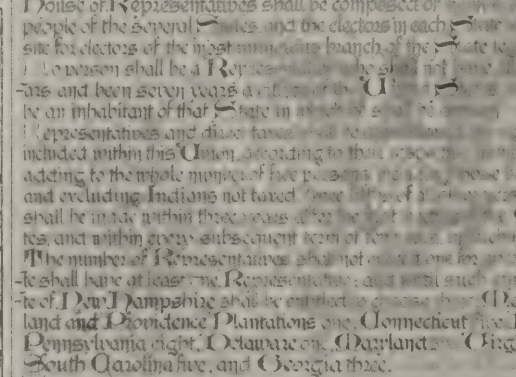 House of Representatives shall be composed of
people of the several States, and the electors in each State
site for electors of the most numerous branch of the State le
No person shall be a Representative who shall not have
-ars and been seven years a citizen of the United States
be an inhabitant of that State in which he shall be
Representatives and direct taxes shall be
included within this Union, according to their respective
adding to the whole number of free persons, including those
and excluding Indians not taxed, three fifths of all other pers
shall be made within three years after the first
tes, and within every subsequent term of ten years, in such
The number of Representatives shall not exceed one for
-te shall have at least one Representative; and until such
-te of New Hampshire shall be entitled to choose three,
land and Providence Plantations one, Connecticut five,
Pennsylvania eight, Delaware one, Maryland Virg
South Carolina five, and Georgia three.